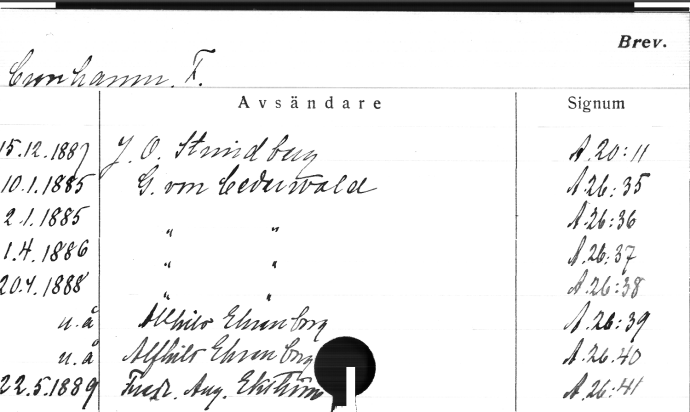 Brev.
Cronhamn. F.
Avsändare Signum
15.12.1887 J. O. Strindberg A.20:11
10.1.1885 G. von Cederwald A.26:35
2.1.1885 " " A.26:36
1.4.1886 " " A.26:37
20.4.1888 " " A.26:38
u.å Alfhild Ehrenborg A.26:39
u.å Alfhild Ehrenborg A.26.40
22.5.1889 Fredr. Aug. Ekström A.26:41